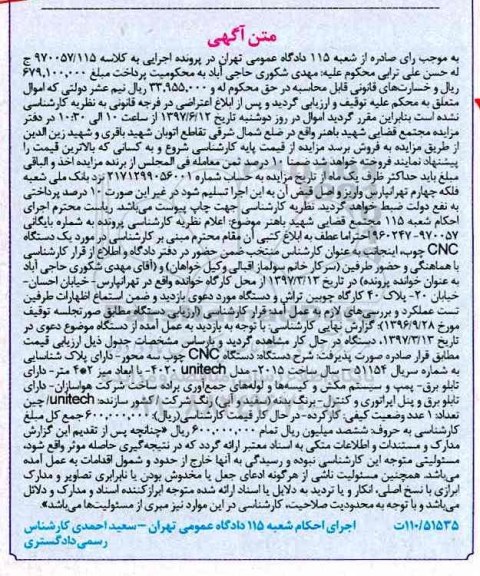 متن آگهی
به موجب رای صادره از شعبه ۱۱۵ دادگاه عمومی تهران در پرونده اجرایی به کلاسه ۹۷۰۰۵۷/۱۱۵ ج
له حسن علی ترابی محکوم علیه: مهدی شکوری حاجی آباد به محکومیت پرداخت مبلغ ۶۷۹,۱۰۰,۰۰۰
ریال و خسارت‌های قانونی قابل محاسبه در حق محکوم له و ۳۳,۹۵۵,۰۰۰ ریال نیم عشر دولتی که اموال
متعلق به محکم علیه توقیف و ارزیابی گردید و پس از ابلاغ اعتراضی در فرجه قانونی به نظریه کارشناسی
نشده است بنابراین مقرر گردید اموال در روز دوشنبه تاریخ ۱۳۹۷/۶/۱۲ از ساعت ۱۰ الی ۱۰:۳۰ در دفتر
مزایده مجتمع قضایی شهید باهنر واقع در ضلع شمال شرقی تقاطع اتوبان شهید باقری و شهید زین الدین
از طریق مزایده به فروش برسد مزایده از قیمت پایه کارشناسی شروع و به کسانی که بالاترین قیمت را
پیشنهاد نمایند فروخته خواهد شد ضمنا ۱۰ درصد ثمن معامله فی المجلس از برنده مزایده اخذ و الباقی
مبلغ باید حداکثر ظرف یک ماه از تاریخ مزایده به حساب شماره ۲۱۷۱۲۹۹۰۵۶۰۰۱ نزد بانک ملی شعبه
فلکه چهارم تهرانپارس واریز و اصل فیش آن به این اجرا تسلیم شود در غیر این صورت ۱۰ درصد پرداختی
به نفع دولت ضبط خواهد گردید. نظریه کارشناسی جهت چاپ پیوست می‌باشد. ریاست محترم اجرای
احکام شعبه ۱۱۵ مجتمع قضایی شهید باهنر موضوع: اعلام نظریه کارشناسی پرونده به شماره بایگانی
۹۷۰۰۵۷- ۹۶۰۲۴۷ احتراما عطف به ابلاغ کتبی آن مقام محترم مبنی بر کارشناسی در مورد یک دستگاه
CNC چوب، اینجانب به عنوان کارشناس منتخب ضمن حضور در دفتر دادگاه و اطلاع از قرار کارشناسی
با هماهنگی و حضور طرفین (سرکار خانم سولماز اقبالی وکیل خواهان) و (آقای مهدی شکوری حاجی آباد
به عنوان خوانده پرونده) در تاریخ ۱۳۹۷/۳/۱۳ از محل کارگاه خوانده واقع در تهرانپارس- خیابان احسان-
خیابان ۲۰- پلاک ۴۰ کارگاه چوبین تراش و دستگاه مورد دعوی بازدید و ضمن استماع اظهارات طرفین
تست عملکرد و بررسی‌های لازم به عمل آمد: قرار کارشناسی (ارزیابی دستگاه مطابق صورتجلسه توقیف
مورخ ۱۳۹۶/۹/۲۸): گزارش نهایی کارشناسی: با توجه به بازدید به عمل آمده از دستگاه موضوع دعوی در
تاریخ ۱۳۹۷/۳/۱۳، دستگاه در حال کار مشاهده گردید و براساس مشخصات جدول ذیل ارزیابی قیمت
مطابق قرار صادره صورت پذیرفت: شرح دستگاه: دستگاه CNC چوب سه محور- دارای پلاک شناسایی
به شماره سریال ۵۱۱۵۴ - سال ساخت ۲۰۱۵- مدل unitech ۴۰۲۰- با ابعاد میز ۲*۴ متر- دارای
تابلو برق- پمپ و سیستم مکش و کیسه‌ها و لوله‌های جمع‌آوری براده ساخت شرکت هواسازان- دارای
تابلو برق و پنل اپراتوری و کنترل - برنگ بدنه (سفید/آبی) رنگ شرکت / کشور سازنده: unitech/ چین
تعداد: ۱ عدد وضعیت کیفی: کارکرده- در حال کار قیمت کارشناسی (ریال): ۶۰۰,۰۰۰,۰۰۰ جمع کل مبلغ
کارشناسی به حروف: ششصد میلیون ریال تمام ۶۰۰۰۰۰۰۰۰ ریال «چنانچه پس از تقدیم این گزارش
مدارک و مستندات و اطلاعات متکی به اسناد معتبر ارائه گردد که در نتیجه‌گیری حاصله موثر واقع شود،
مسئولیتی متوجه این کارشناسی نبوده و رسیدگی به آنها خارج از حدود و شمول اقدامات به عمل آمده
می‌باشد. همچنین مسئولیت ناشی از هرگونه ادعای جعل یا مخدوش بودن یا نابرابری تصاویر و مدارک
ابرازی با نسخ اصلی، انکار و یا تردید به دلایل یا اسناد ارائه شده متوجه ابرازکننده اسناد و مدارک و دلائل
می‌باشد و با توجه به محدودیت صلاحیت، کارشناسی در این موارد نیز مبری از مسئولیت‌ها می‌باشد».
۱۱۰/۵۱۵۳۵ت اجرای احکام شعبه ۱۱۵ دادگاه عمومی تهران – سعید احمدی کارشناس
رسمی دادگستری